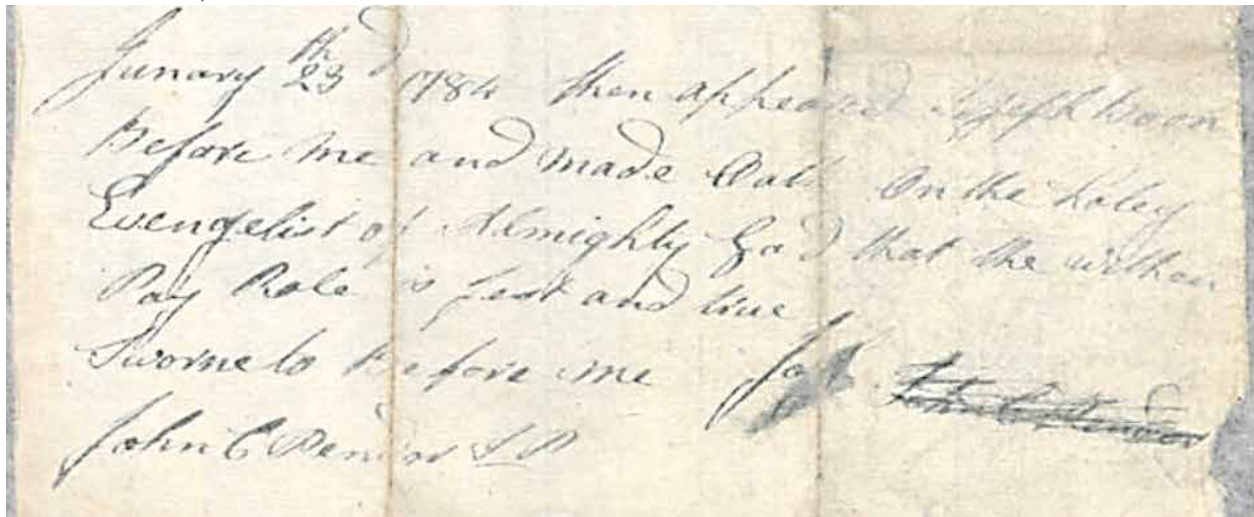 Junary 23th 1784 then appeared Joseph Boon
Before me and made Oath On the holey
Evengelist of Almighty God that the within
Pay Role is Jest and true
Sworne to Before me
John C